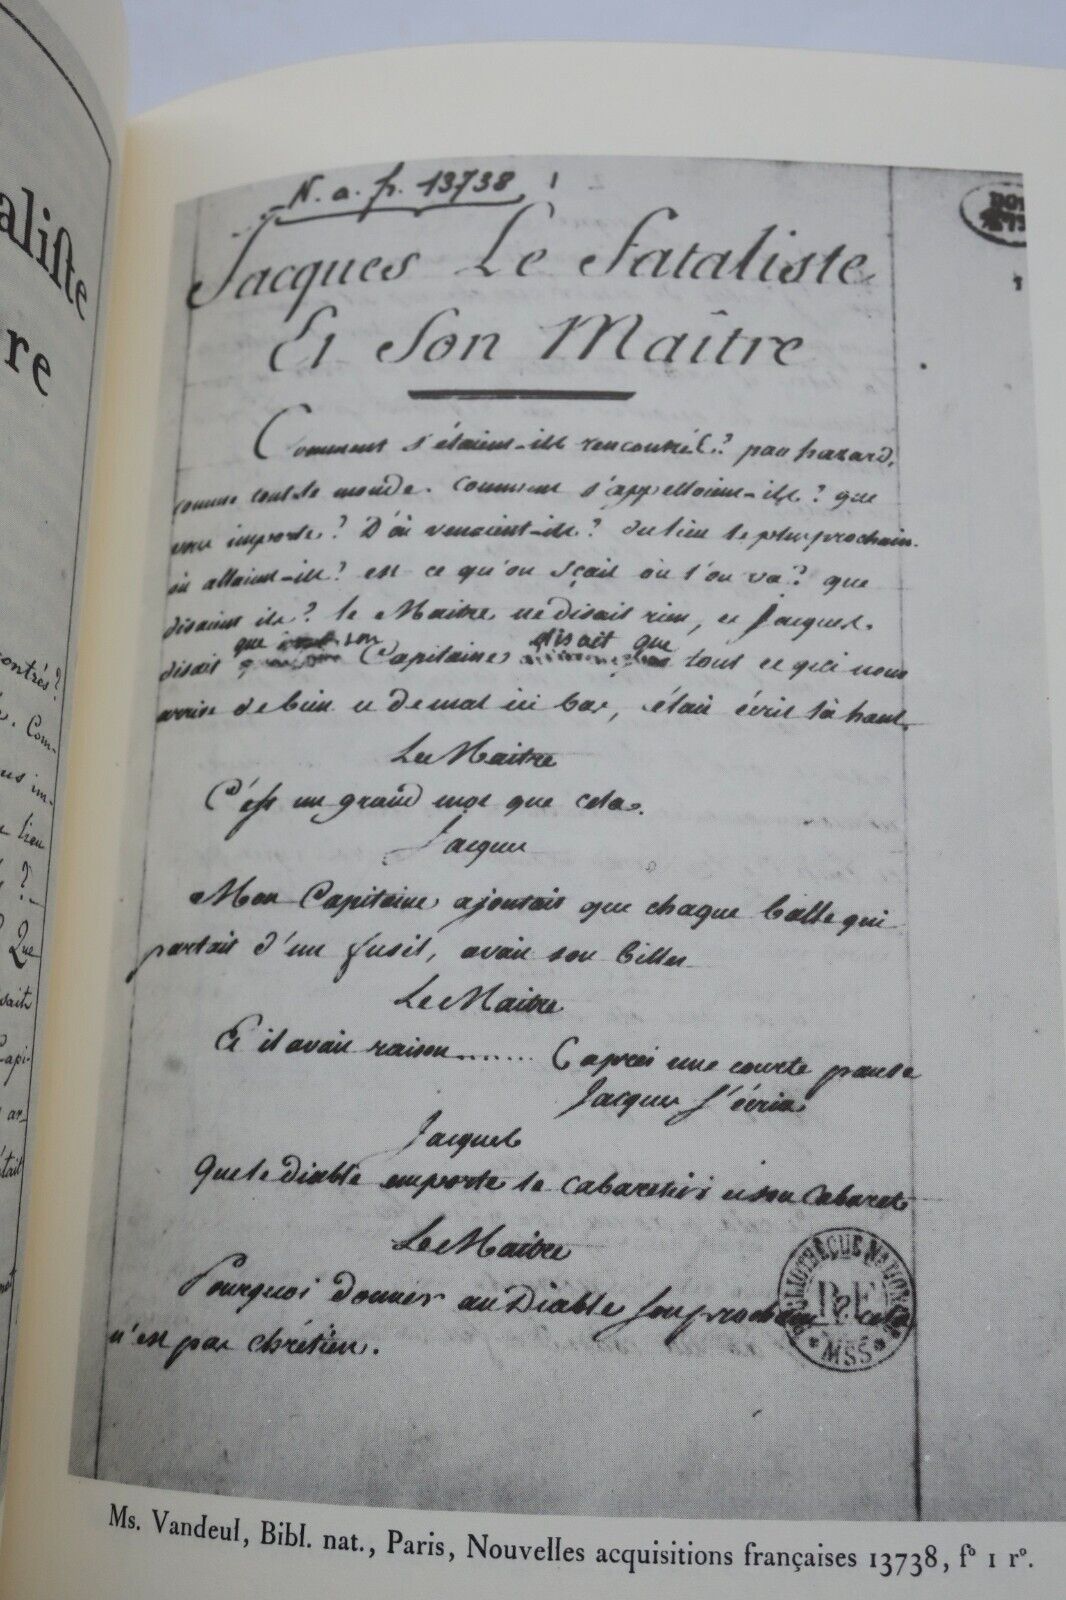 aliste
re
contrés?
Com-
us im-
lieu
?
Que
Capi-
ar-
était
N. a. fr. 13738 1
Jacques Le Fataliste
Et Son Maître
Comment s'étaient-ils rencontrés? par hazard,
comme tout le monde. Comment s'appelloient-ils? que
vous importe? D'où venoient-ils? du lieu le plus prochain.
où alloient-ils? est ce qu'on sçait où l'on va? que
disaient ils? le Maitre ne disait rien, et Jacques
que son disait que
disait Capitaine tout ce qui nous
arrive de bien et de mal ici bas, était écrit là haut.
Le Maitre
C'est un grand mot que cela.
Jacques
Mon Capitaine ajoutait que chaque balle qui
partait d'un fusil, avait son billet
Le Maitre
Et il avait raison........ (après une courte pause
Jacques s'écria
Jacques
Que le diable emporte le cabaretier et son Cabaret
Le Maitre
Pourquoi donner au Diable son prochain cela
n'est pas chrétien.
BIBLIOTHÈQUE NATIONALE
MSS
Ms. Vandeul, Bibl. nat., Paris, Nouvelles acquisitions françaises 13738, f° 1 r°.